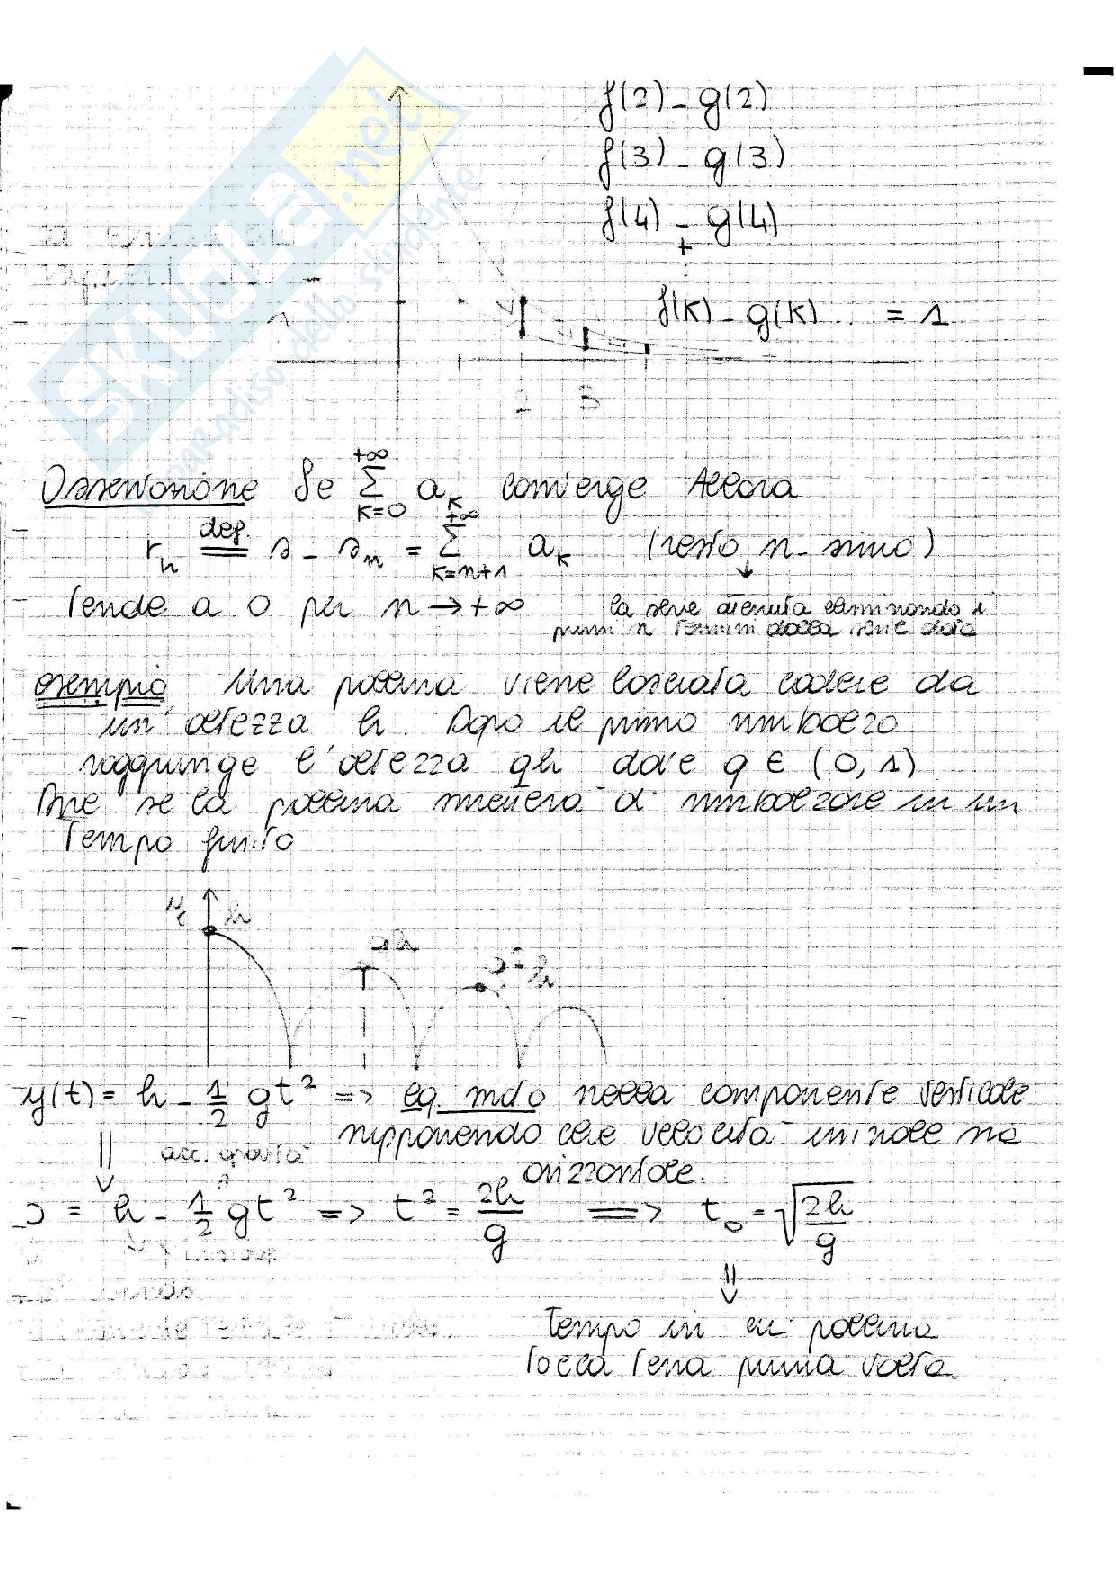 f(2) - g(2)
f(3) - g(3)
f(4) - g(4)
+
f(k) - g(k) .. = 1
2 3
SKUOLA.net
paradiso dello studente
Osservazione Se +∞ Σ k=0 a_k converge Allora
r_n def. = s - s_n = +∞ Σ k=n+1 a_k (resto n-simo)
Tende a 0 per n → +∞ la serie ottenuta eliminando i
primi n termini dalla serie data
esempio Una pallina viene lasciata cadere da
un'altezza h. Dopo il primo rimbalzo
raggiunge l'altezza qh dove q ∈ (0,1)
Dire se la pallina smetterà di rimbalzare in un
Tempo finito
h
y(t) = h - 1/2 gt² => eq. moto nella componente verticale
acc. gravità supponendo che velocità iniziale sia
orizzontale.
0 = h - 1/2 gt² => t² = 2h/g => t_0 = √(2h/g)
Tempo in cui pallina
Tocca Terra prima volta.